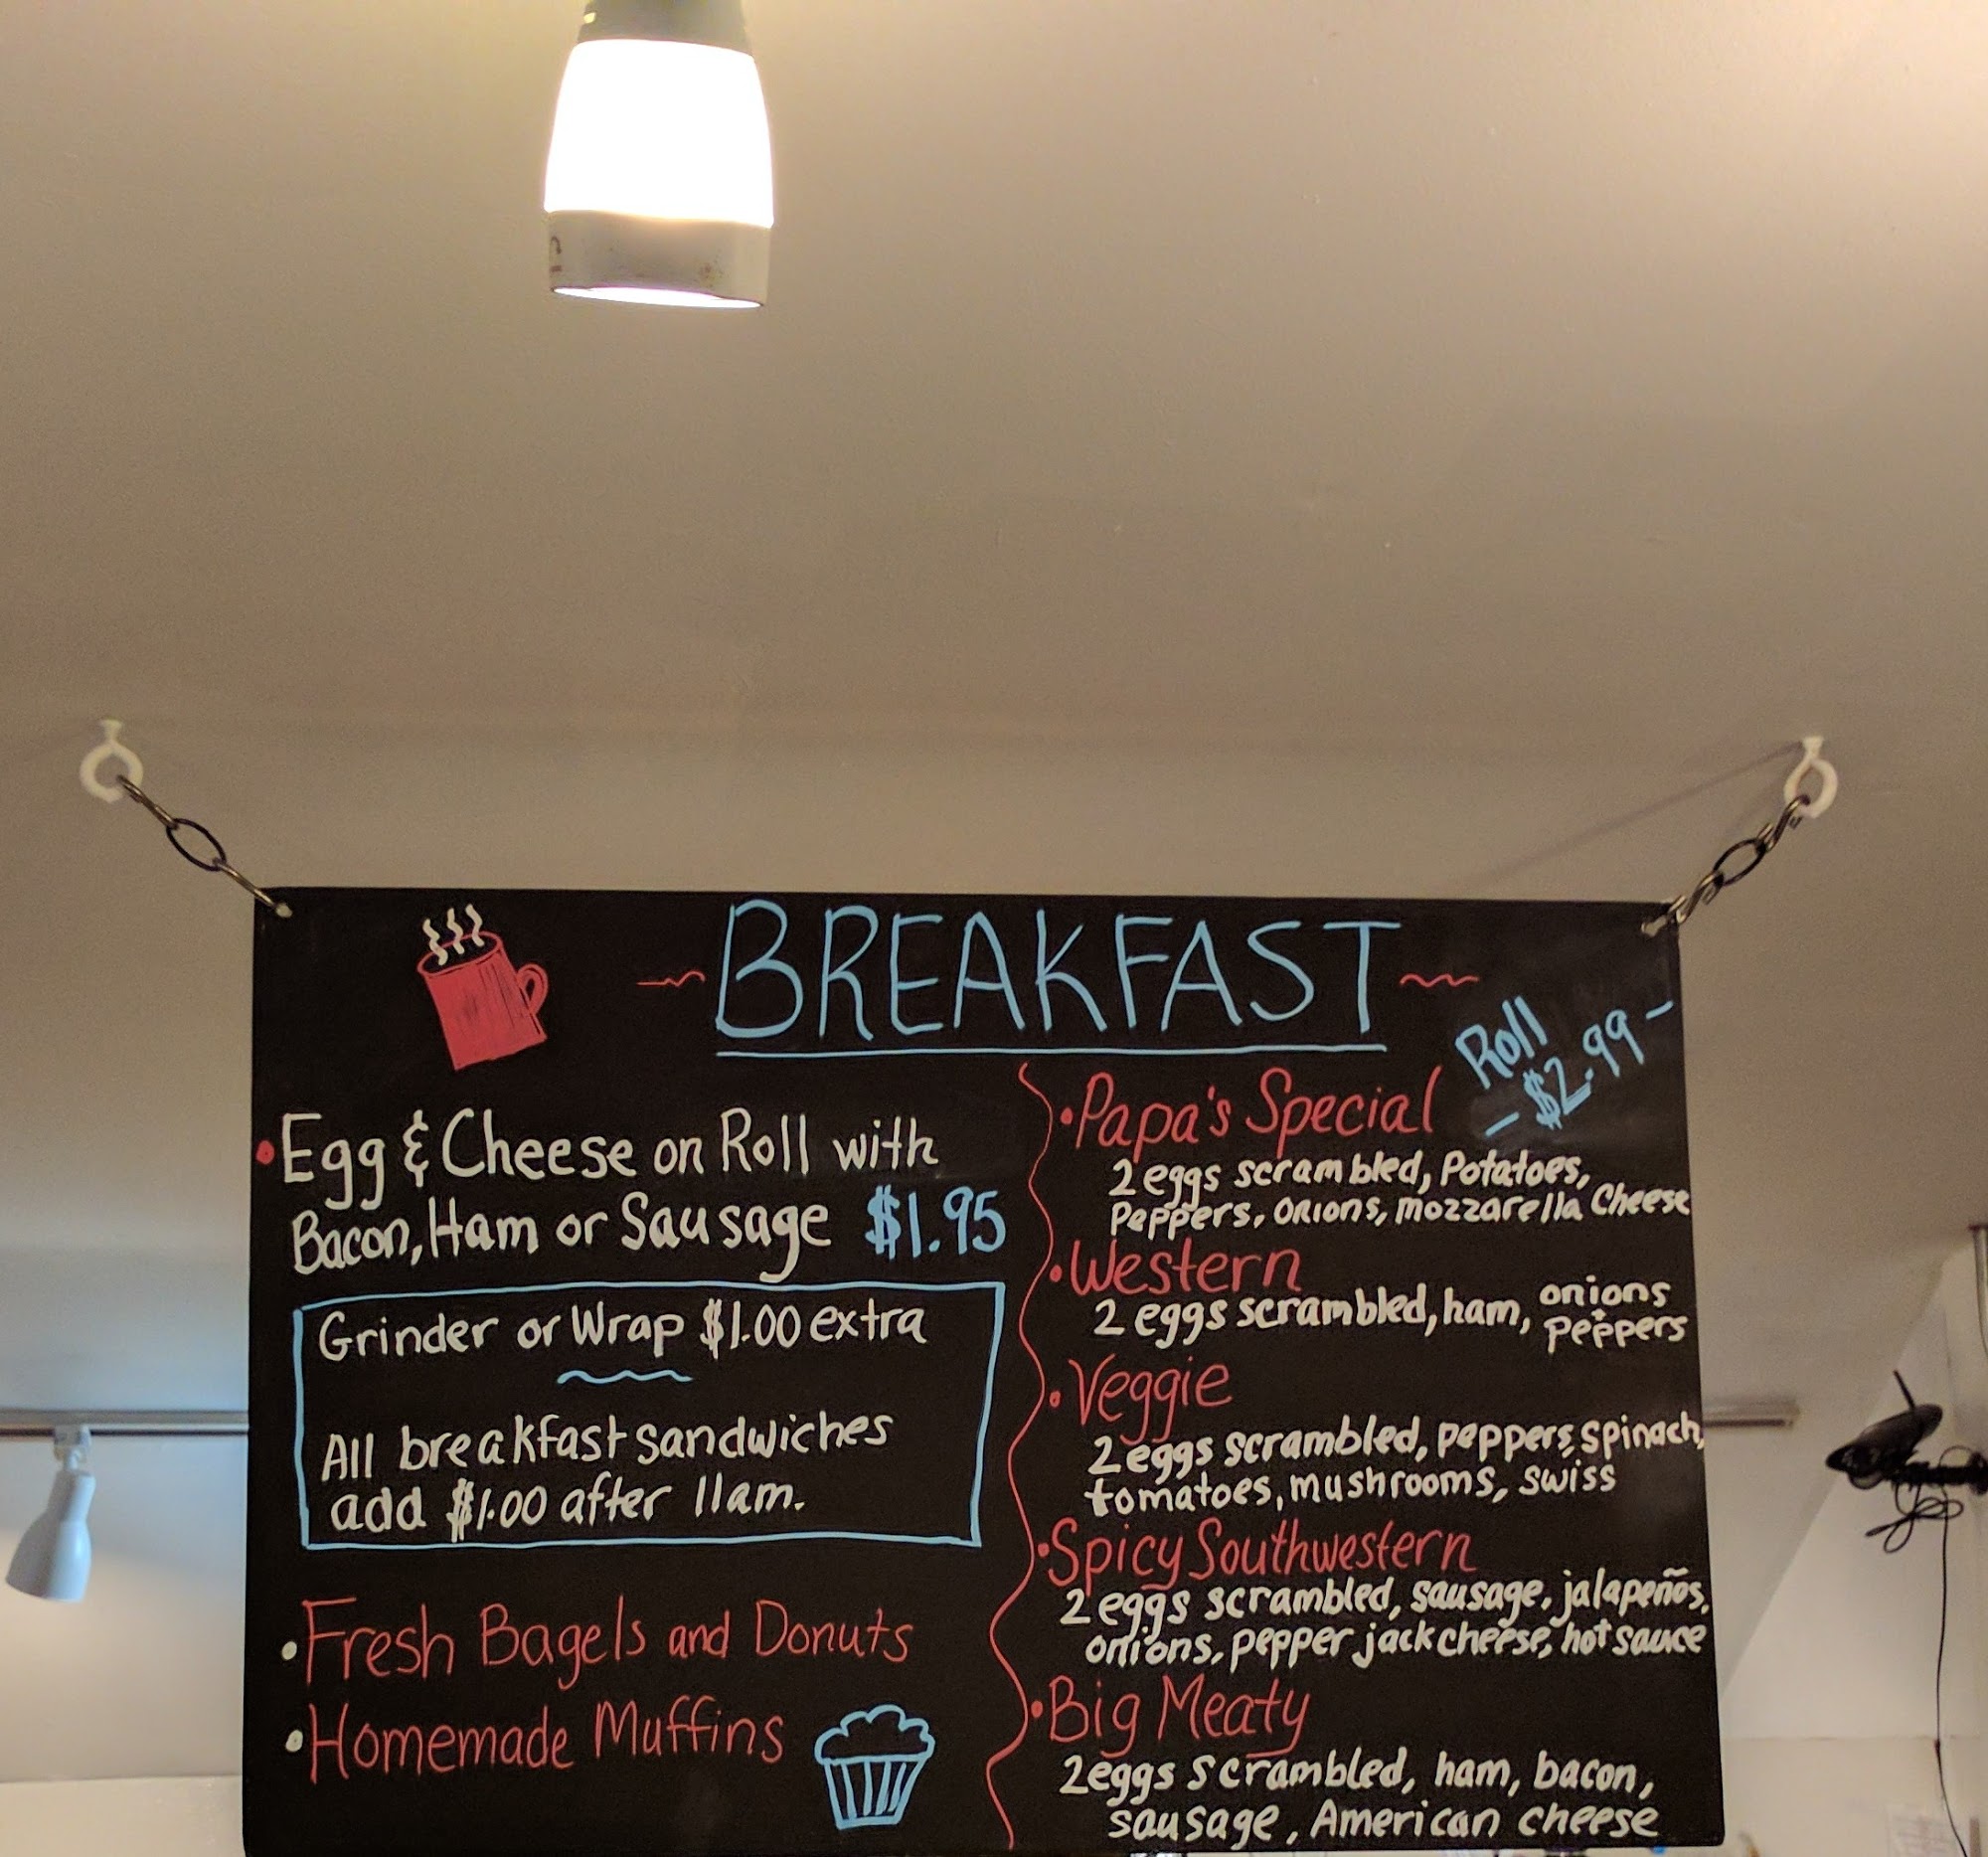 BREAKFAST
Egg & Cheese on Roll with
Bacon, Ham or Sausage $1.95
Grinder or Wrap $1.00 extra
All breakfast sandwiches
add $1.00 after 11am.
Fresh Bagels and Donuts
Homemade Muffins
Roll
- $2.99 -
Papa's Special
2 eggs scrambled, Potatoes,
Peppers, onions, mozzarella Cheese
Western
2 eggs scrambled, ham, onions + peppers
Veggie
2 eggs scrambled, peppers, spinach,
tomatoes, mushrooms, swiss
Spicy Southwestern
2 eggs scrambled, sausage, jalapeños,
onions, pepper jack cheese, hot sauce
Big Meaty
2 eggs scrambled, ham, bacon,
sausage, American cheese